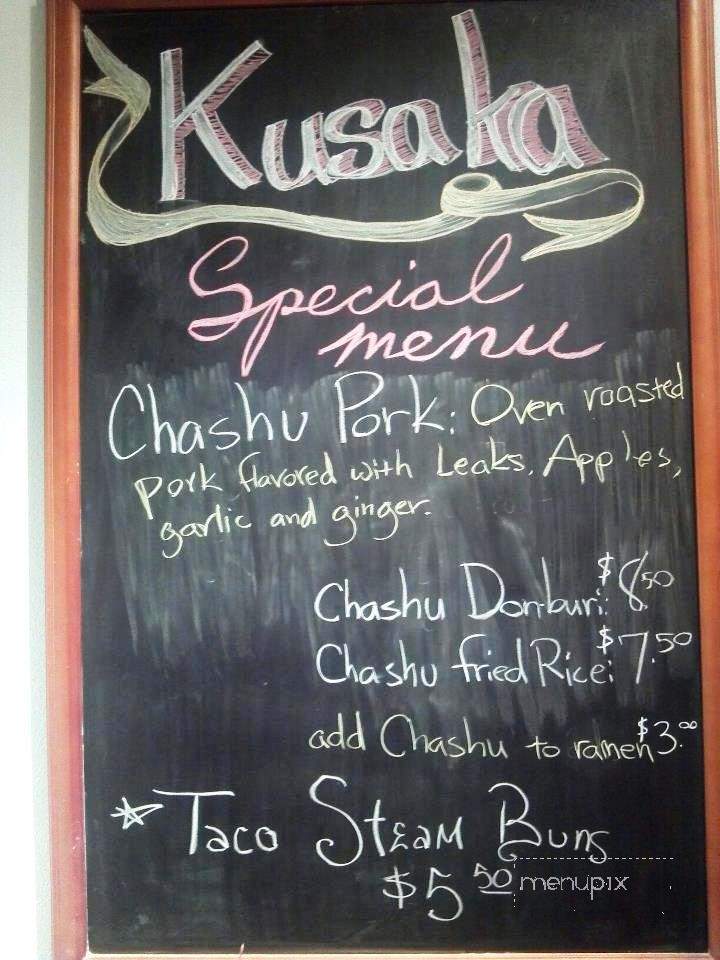 Kusaka
Special
menu
Chashu Pork: Oven roasted
pork flavored with Leaks, Apples,
garlic and ginger.
Chashu Don-buri: $8.50
Chashu fried Rice: $7.50
add Chashu to ramen $3.00
* Taco Steam Buns
$5.50
menupix